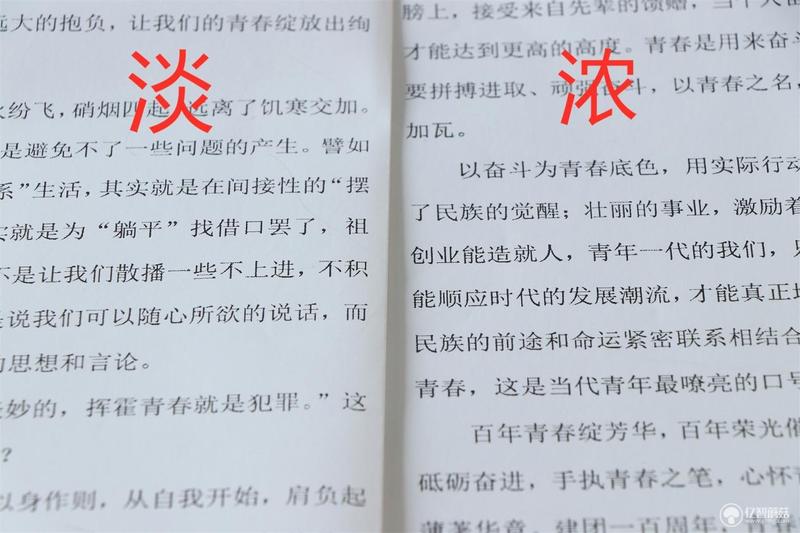 淡
远大的抱负，让我们的青春绽放出绚
纷飞，硝烟四起，远离了饥寒交加。
是避免不了一些问题的产生。譬如
系”生活，其实就是在间接性的“摆
实就是为“躺平”找借口罢了，祖
不是让我们散播一些不上进，不积
是说我们可以随心所欲的说话，而
的思想和言论。
妙的，挥霍青春就是犯罪。”这
？
以身作则，从自我开始，肩负起
浓
膀上，接受来自先辈的馈赠，当个人奋
才能达到更高的高度。青春是用来奋斗
要拼搏进取、顽强奋斗，以青春之名，
加瓦。
以奋斗为青春底色，用实际行动
了民族的觉醒；壮丽的事业，激励着
创业能造就人，青年一代的我们，只
能顺应时代的发展潮流，才能真正地
民族的前途和命运紧密联系相结合
青春，这是当代青年最嘹亮的口号
百年青春绽芳华，百年荣光催
砥砺奋进，手执青春之笔，心怀青
谱著华章。建团一百周年，百春
亿智蘑菇